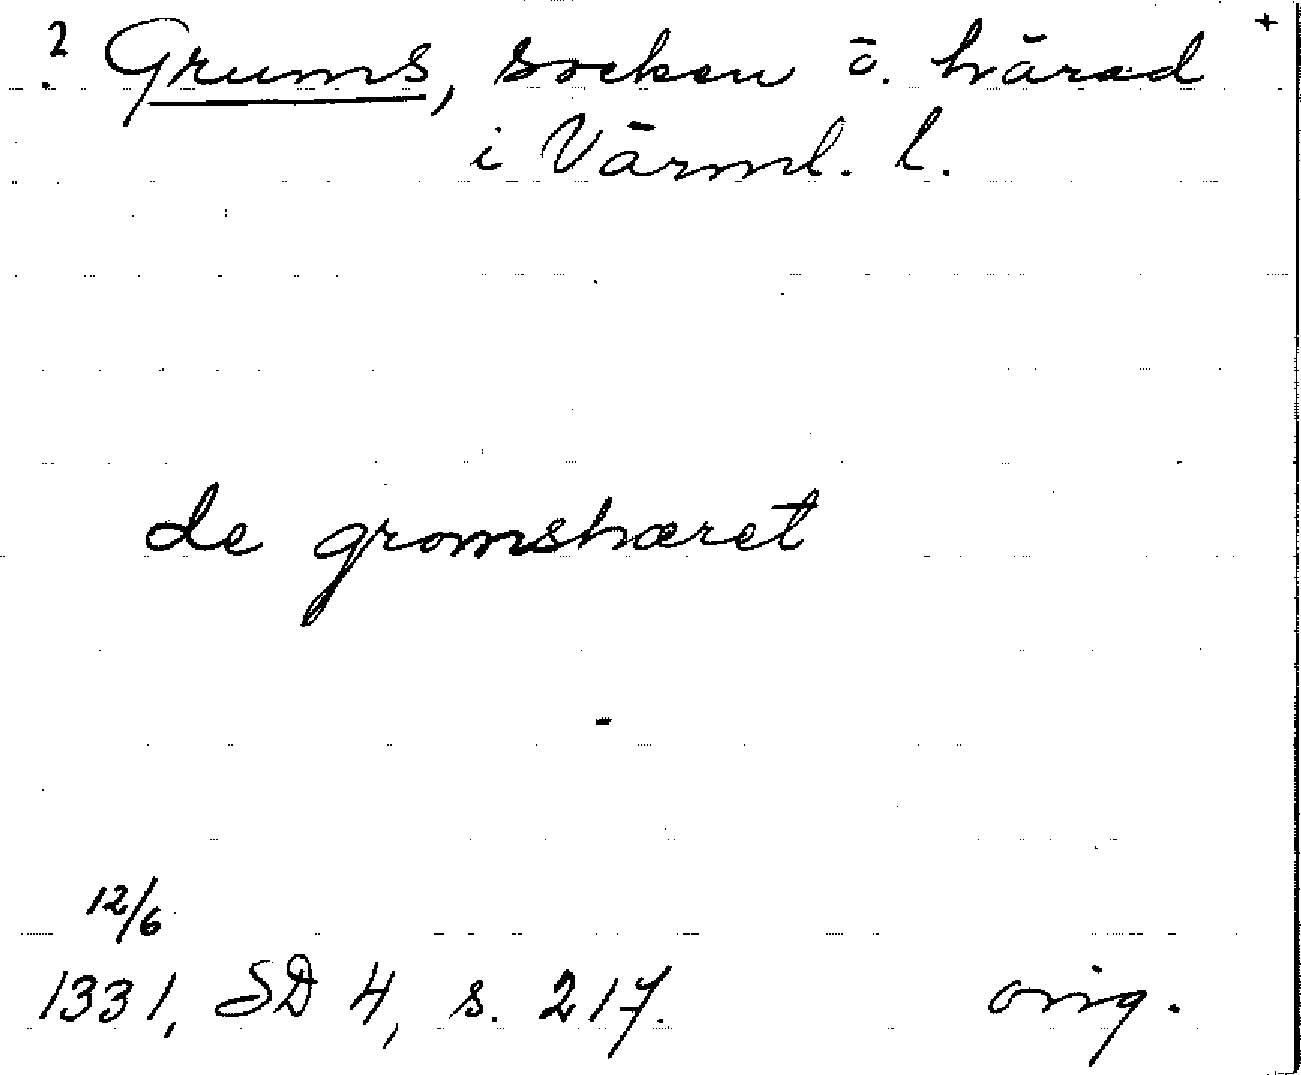 ? Grums, socken o. härad +
i Värml. l.
de gromshæret
-
12/6
1331, SD 4, s. 217. orig.